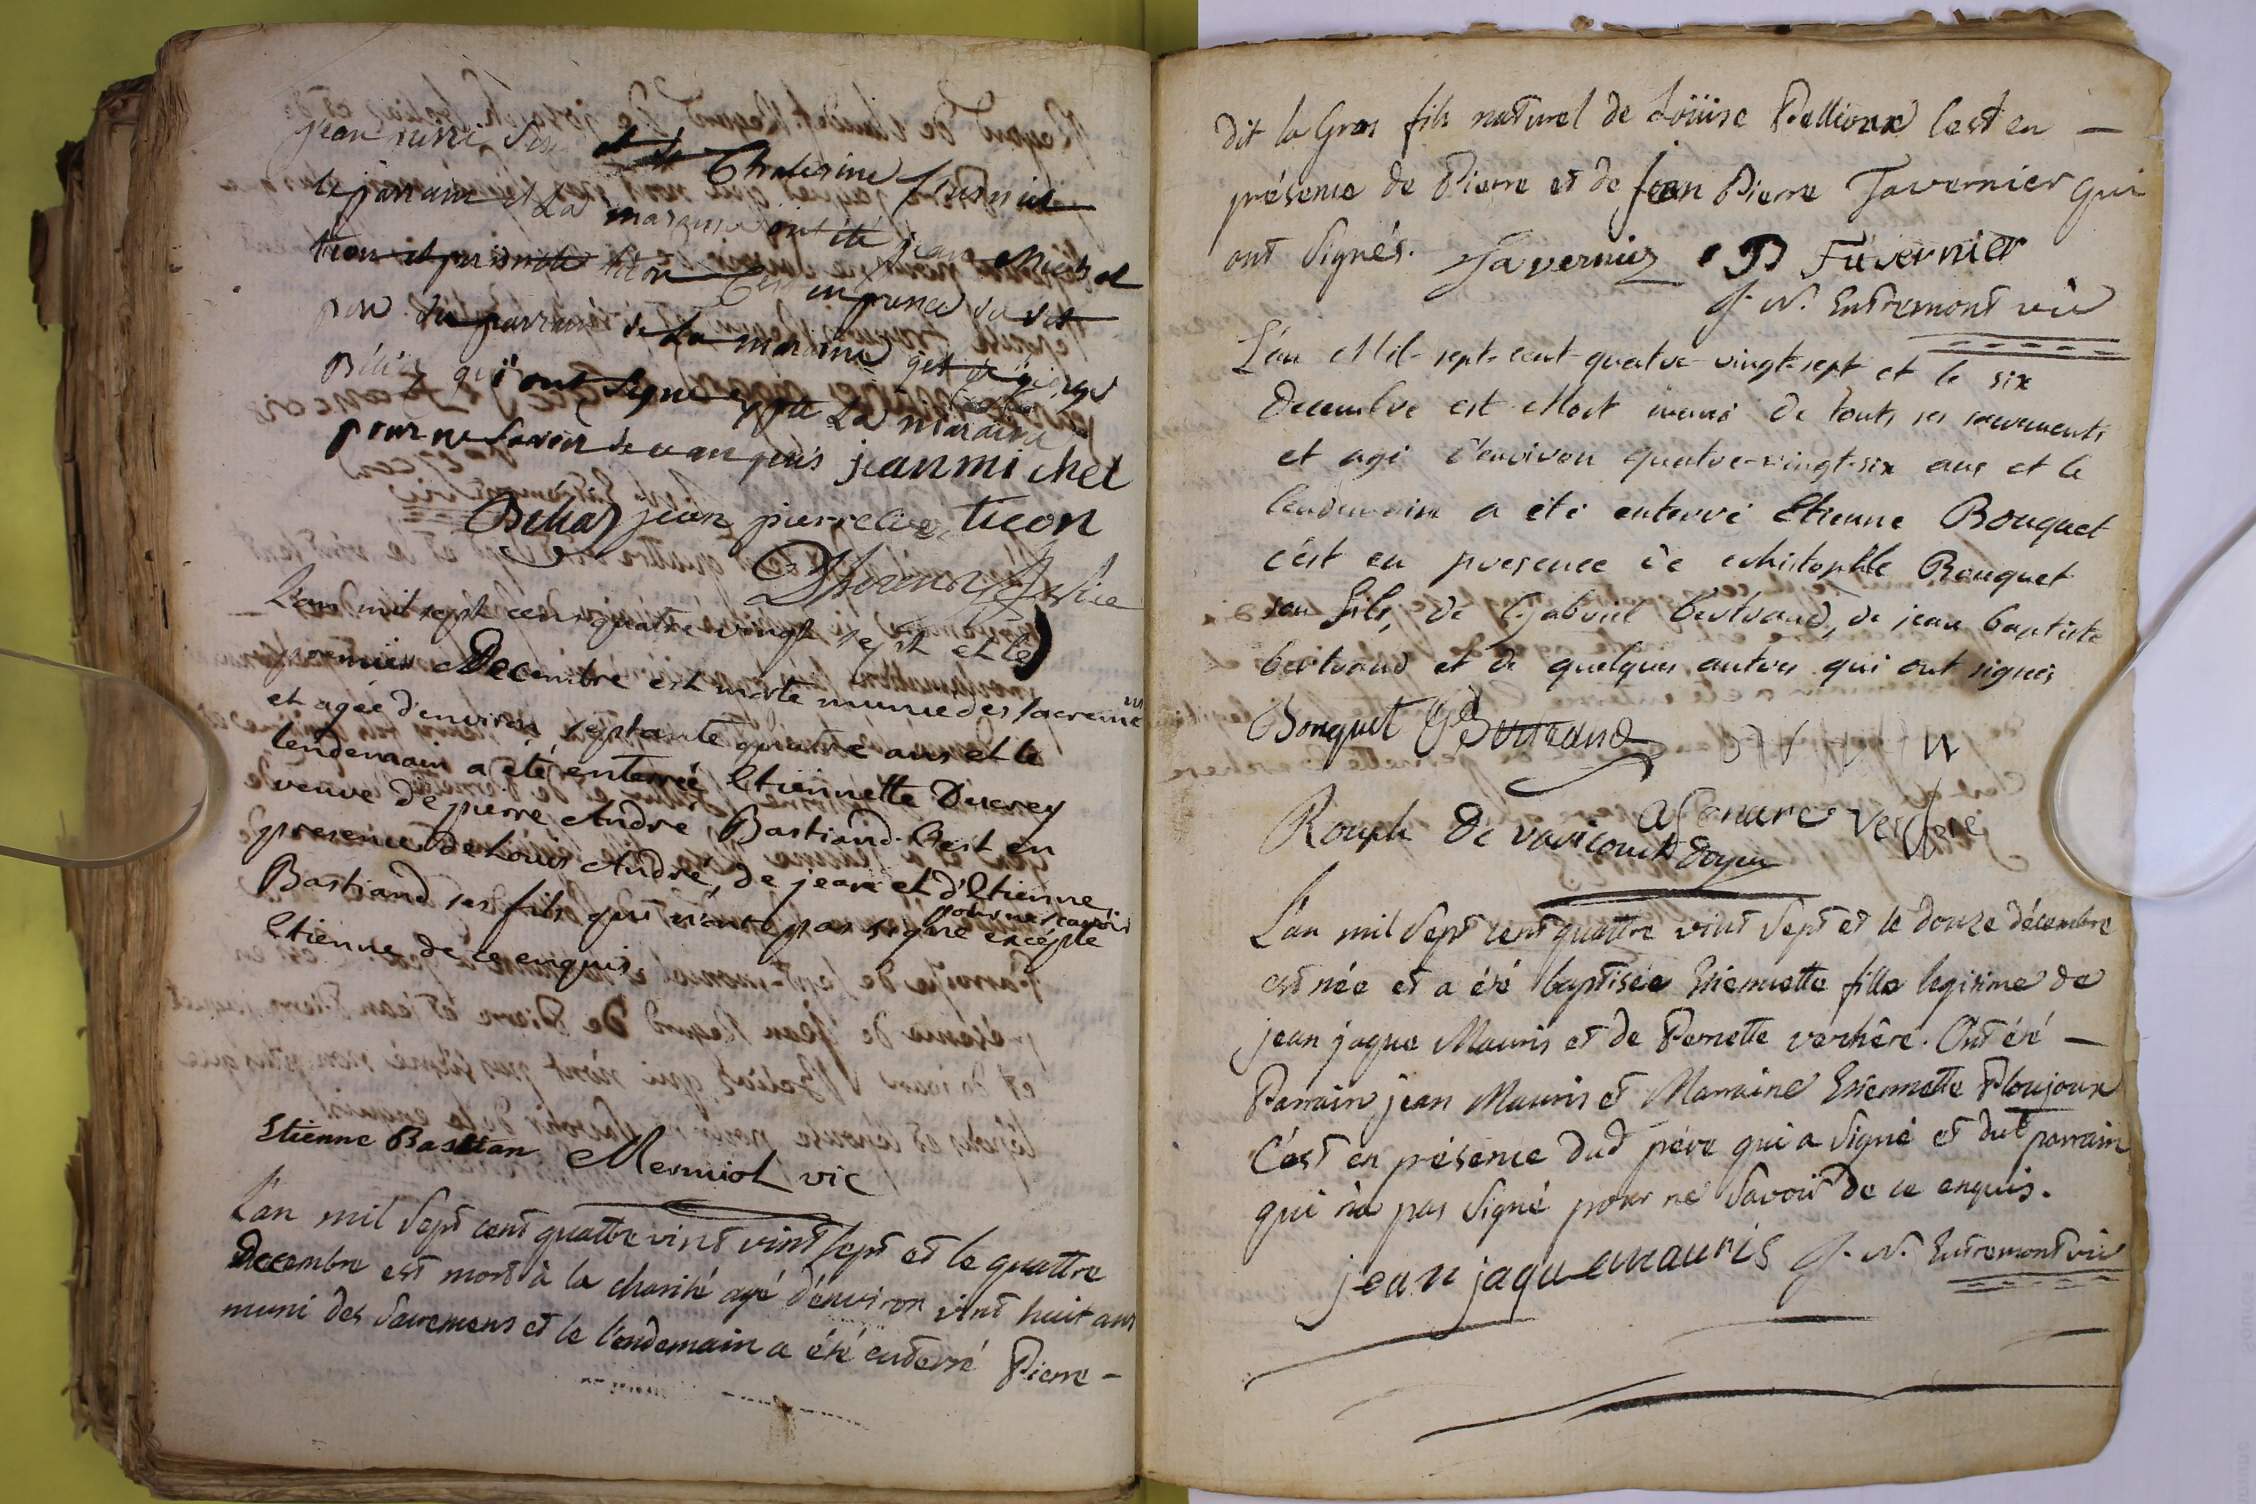 jean pierre et de Chaterine
le parrain et La maraine ont été jean Michel
en presence du dit
père du parrain de La maraine et de
Béliaz qui ont signé La maraine
pour ne savoir de ce enquis jean michel
Béliaz jean pierre ticon
vice
L'an mil sept cent quattre vingt sept et le
premier Decembre est morte munie des sacremens
et agée d'environ septante quatre ans et le
lendemain a été enterrée Etiennette Ducrey
veuve de pierre André Bastiand. C'est en
presence de Louis André, de jean et d'Etienne
Bastiand ses fils qui n'ont pas signé pour ne scavoir excepté
Etienne de ce enquis
Etienne Bastian Mermiol vic
L'an mil Sept cent quattre vint vint sept et le quattre
Decembre est mort à la charité agé d'environ vint huit ans
muni des Sacremens et le lendemain a été enterré Pierre -
dit la Gras fils naturel de Loüise Pellioux C'est en —
présence de Pierre et de Jean Pierre Tavernier qui
ont Signés. Tavernier P Tavernier
J. N. Entremont vic
L'an Mil-sept-cent-quatre-vingt-sept et le six
Decembre est Mort muni de touts ses sacrements
et agé d'environ quatre-vingt-six ans et le
lendemain a été enterré Etienne Bouquet
c'est en presence de christophle Bouquet
son fils, de Gabriel bertrand, de jean baptiste
bertrand et de quelques autres qui ont signés
Bouquet Gd Bertrand
Rouph de varicourt Doyen
L'an mil Sept cent quattre vint Sept et le douze décembre
est née et a été baptisée Etiennette fille legitime de
jean jaque Mauris et de Pernette verchère. Ont été —
Parrain jean Mauris et Marraine Etiennette Ploujoux
C'est en présence dud père qui a Signé et dud parrain
qui n'a pas Signé pour ne Savoir de ce enquis.
jean jaque mauris J. N. Entremont vic